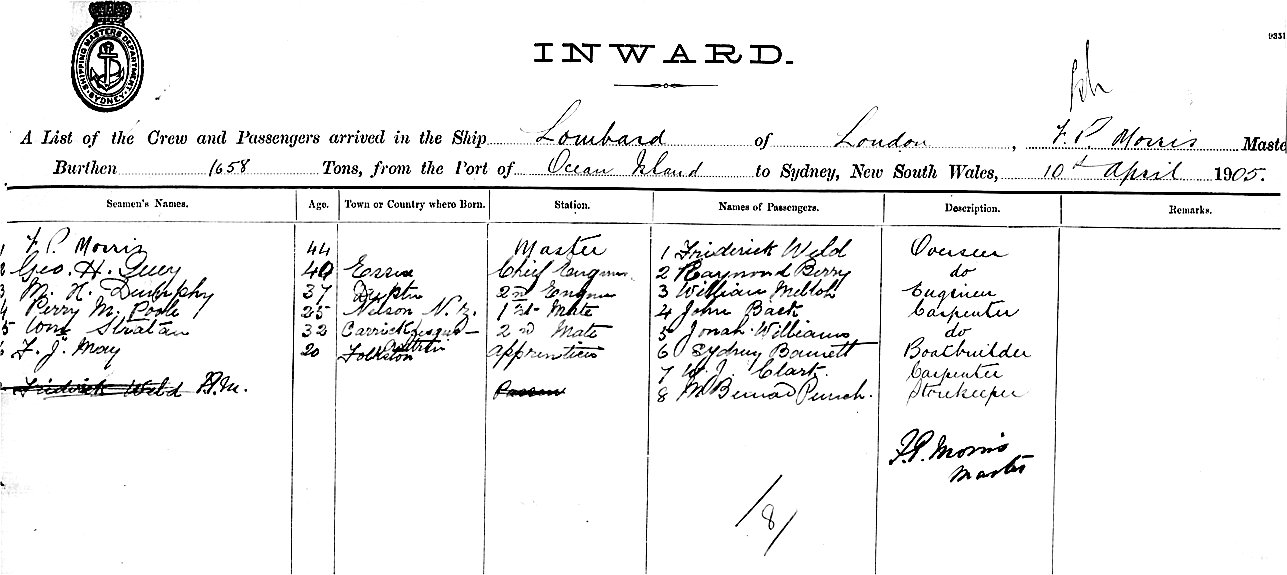 SHIPPING MASTERS DEPARTMENT SYDNEY
INWARD.
A List of the Crew and Passengers arrived in the Ship Lombard of London, F. P. Morris Maste
Burthen 1658 Tons, from the Port of Ocean Island to Sydney, New South Wales, 10th April 1905.
Seamen's Names. Age. Town or Country where Born. Station. Names of Passengers. Description. Remarks.
1 F. P. Morris 44 Master 1 Friderick Weld Overseer
2 Geo. H. 40 Essex Chief Engineer 2 Raymond Berry do
3 M. H. Dumphy 37 2nd Engineer 3 William Melton Engineer
4 Perry M. Poole 25 Nelson N.Z. 1st Mate 4 John Back Carpenter
5 Wm Stratan 32 Carrickfergus 2nd Mate 5 Jonah Williams do
6 F. J. May 20 Folkston Apprentice 6 Sydney Barnett Boatbuilder
7 W. J. Clark. Carpenter
Friderick Weld F.P.M. Passen 8 M Bernard Punch. Storekeeper
F.P. Morris
Master
/8/